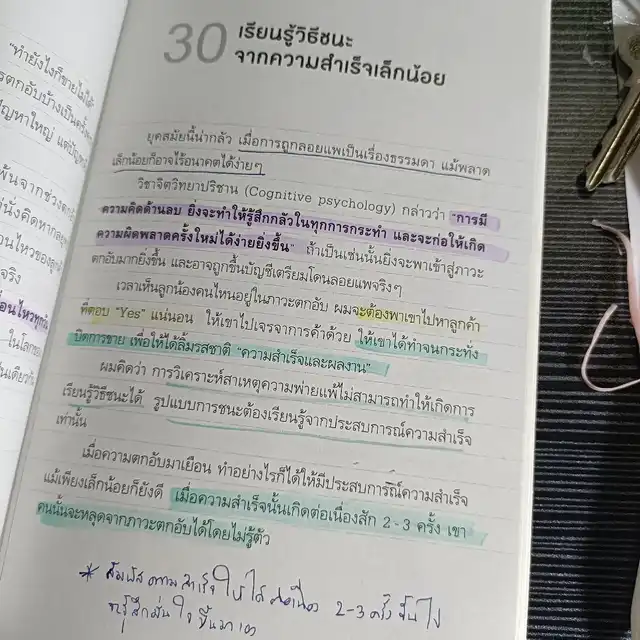 "ทำยังไงก็ขายไม่ได้
รตกอับบ้างเป็นครั้ง
ปัญหาใหญ่ แต่ปัญ
พ้นจากช่วงตก
นั่งคิดหากล
อนไหวของลูก
จริง
ในโลกขอ
30 เรียนรู้วิธีชนะ
จากความสำเร็จเล็กน้อย
ยุคสมัยนี้น่ากลัว เมื่อการถูกลอยแพเป็นเรื่องธรรมดา แม้พลาด
เล็กน้อยก็อาจไร้อนาคตได้ง่ายๆ
วิชาจิตวิทยาปริชาน (Cognitive psychology) กล่าวว่า "การมี
ความคิดด้านลบ ยิ่งจะทำให้รู้สึกกลัวในทุกการกระทำ และจะก่อให้เกิด
ความผิดพลาดครั้งใหม่ได้ง่ายยิ่งขึ้น" ถ้าเป็นเช่นนั้นยิ่งจะพาเข้าสู่ภาวะ
ตกอับมากยิ่งขึ้น และอาจถูกขึ้นบัญชีเตรียมโดนลอยแพจริงๆ
เวลาเห็นลูกน้องคนไหนอยู่ในภาวะตกอับ ผมจะต้องพาเขาไปหาลูกค้า
ที่ตอบ "Yes" แน่นอน ให้เขาไปเจรจาการค้าด้วย ให้เขาได้ทำจนกระทั่ง
ปิดการขาย เพื่อให้ได้ลิ้มรสชาติ "ความสำเร็จและผลงาน"
ผมคิดว่า การวิเคราะห์สาเหตุความพ่ายแพ้ไม่สามารถทำให้เกิดการ
เรียนรู้วิธีชนะได้ รูปแบบการชนะต้องเรียนรู้จากประสบการณ์ความสำเร็จ
เท่านั้น
เมื่อความตกอับมาเยือน ทำอย่างไรก็ได้ให้มีประสบการณ์ความสำเร็จ
แม้เพียงเล็กน้อยก็ยังดี เมื่อความสำเร็จนั้นเกิดต่อเนื่องสัก 2-3 ครั้ง เขา
คนนั้นจะหลุดจากภาวะตกอับได้โดยไม่รู้ตัว
* สัมผัสความสำเร็จให้ได้ต่อเนื่อง 2-3 ครั้งขึ้นไป
จะรู้สึกมั่นใจขึ้นมาเอง